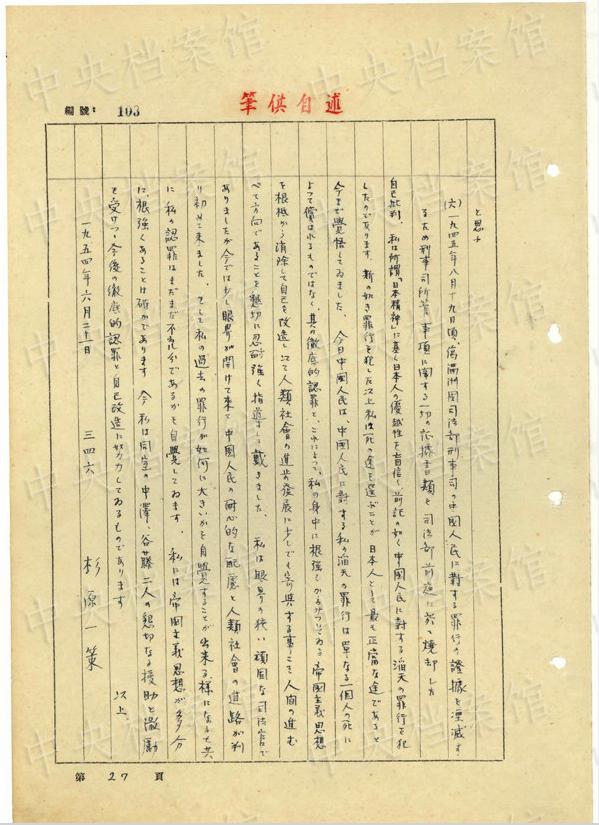 編號： 103
筆供自述
と思ふ
(六) 一九四五年八月十九日頃、偽満洲国司法部刑事司の中國人民に対する罪行の證據を湮滅す
るため刑事司所管事項に関する一切の証據書類を司法部前庭に於て焼却した
自己批判、私は所謂「日本精神」に基く日本人の優越性を盲信し前記の如く中國人民に対する滔天の罪行を犯
したのであります 斯の如き罪行を犯した以上私は死の途を選ぶことが日本人として最も正當な途であると
今まで覺悟してゐました、 今日中國人民は中國人民に対する私の滔天の罪行は単なる一個人の死に
よって償はれるものではなく、其の徹底的認罪と、これによって、私の身中に根強く からみついてゐる帝國主義思想
を根柢から清除して自己を改造し 以て人類社會の進歩発展に少しでも寄與する事こそ人間の進む
べき方向であることを懇切に忍耐強く指導して戴きました、 私は眼界の狭い頑固な司法官で
ありましたが今では少し眼界が開けて来て中國人民の耐心的な配慮と人類社會の道路が判
り初めて来ました、そして私の過去の罪行が如何に大きいかを自覺することが出来る様になると共
に私の認罪はまだまだ不充分であるかを自覺してゐます 私には帝國主義思想が多分
に、根強くあることは確かであります 今 私は同室の中澤、谷藤二人の懇切なる援助と激勵
を受けつつ今後の徹底的認罪と自己改造に努力してゐるものであります
以上
一九五四年六月二十一日 三四六 杉原一策
第 27 頁
中央档案馆